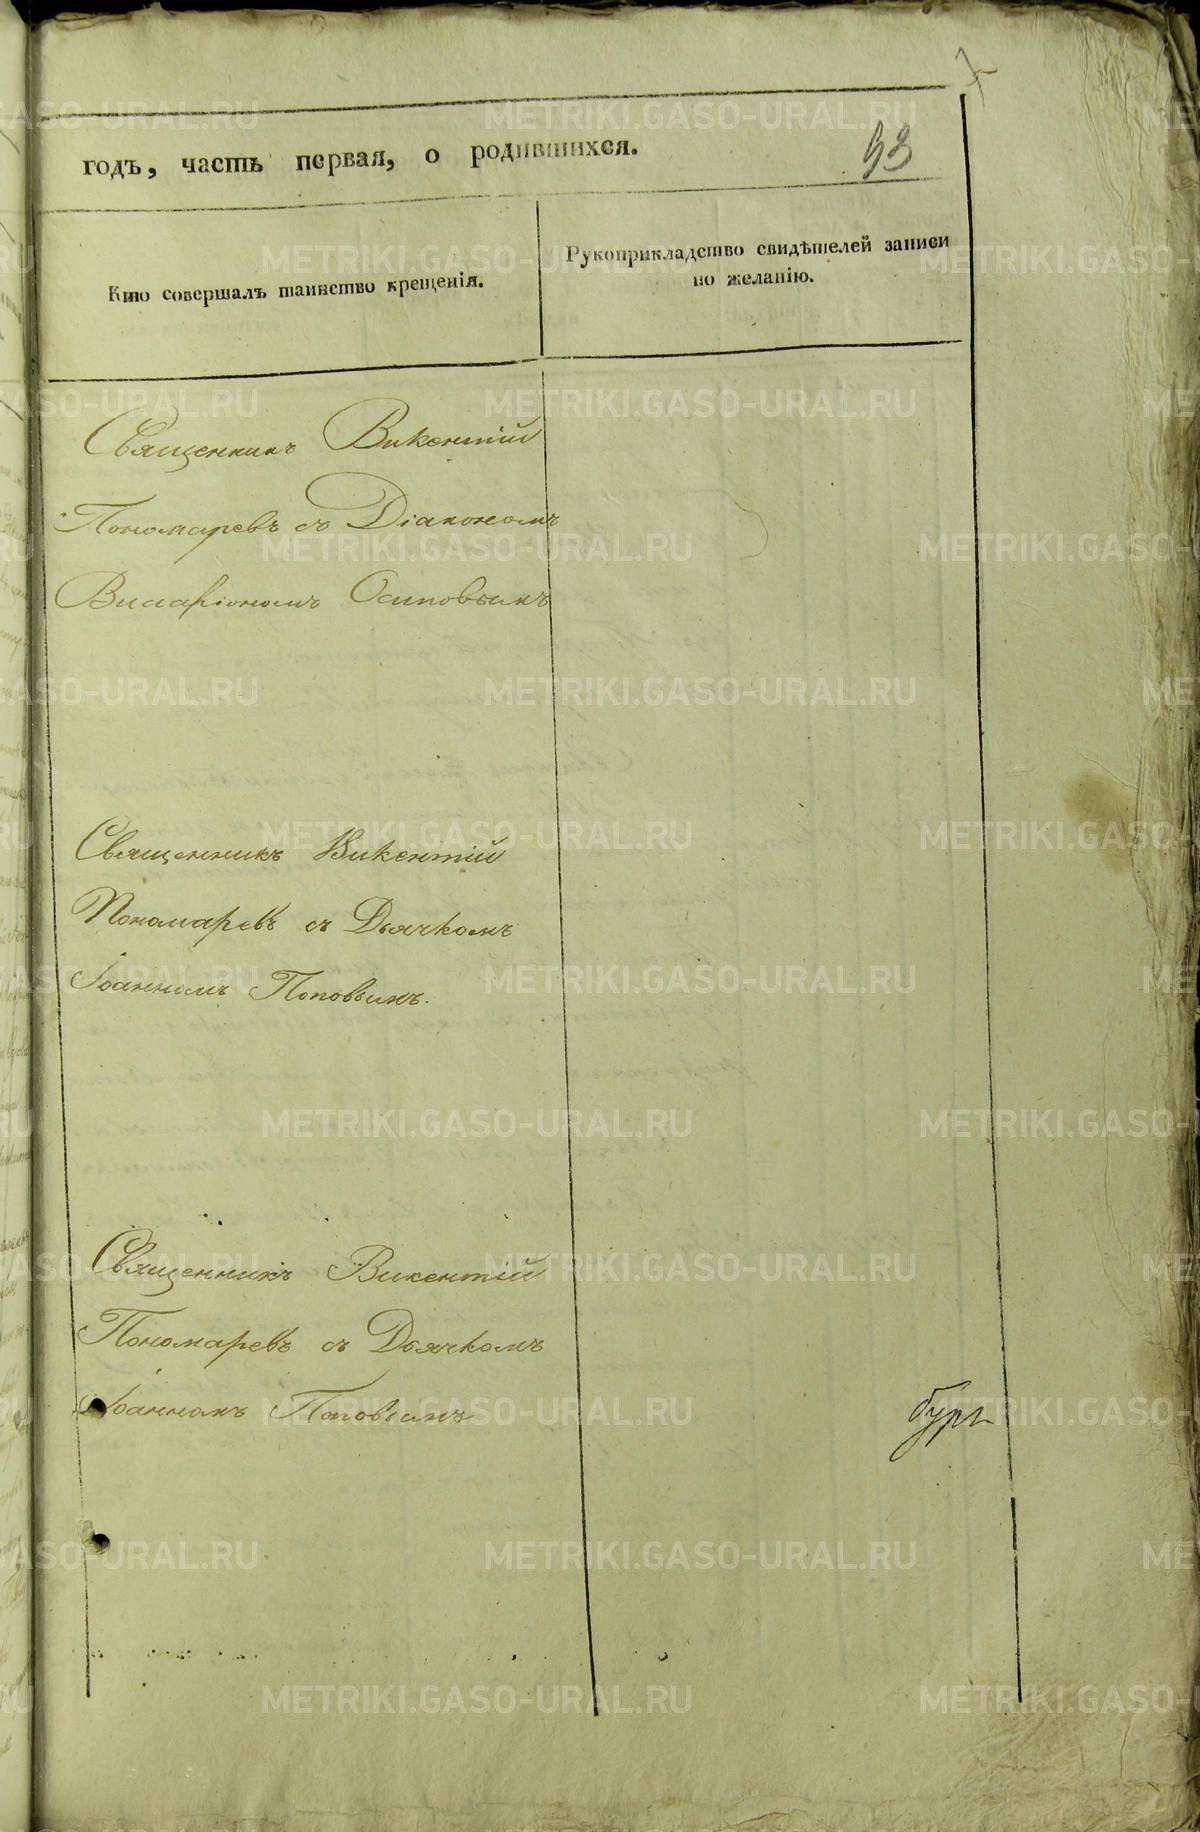 годъ, часть первая, о родившихся.
93
Кто совершалъ таинство крещенія.
Рукоприкладство свидѣтелей записи
по желанію.
Священникъ Викентій
Пономаревъ съ Діакономъ
Виссаріономъ Осиповымъ
Священникъ Викентій
Пономаревъ съ Дьячкомъ
Іоанномъ Поповымъ.
Священникъ Викентій
Пономаревъ съ Дьячкомъ
Іоанномъ Поповымъ
METRIKI.GASO-URAL.RU